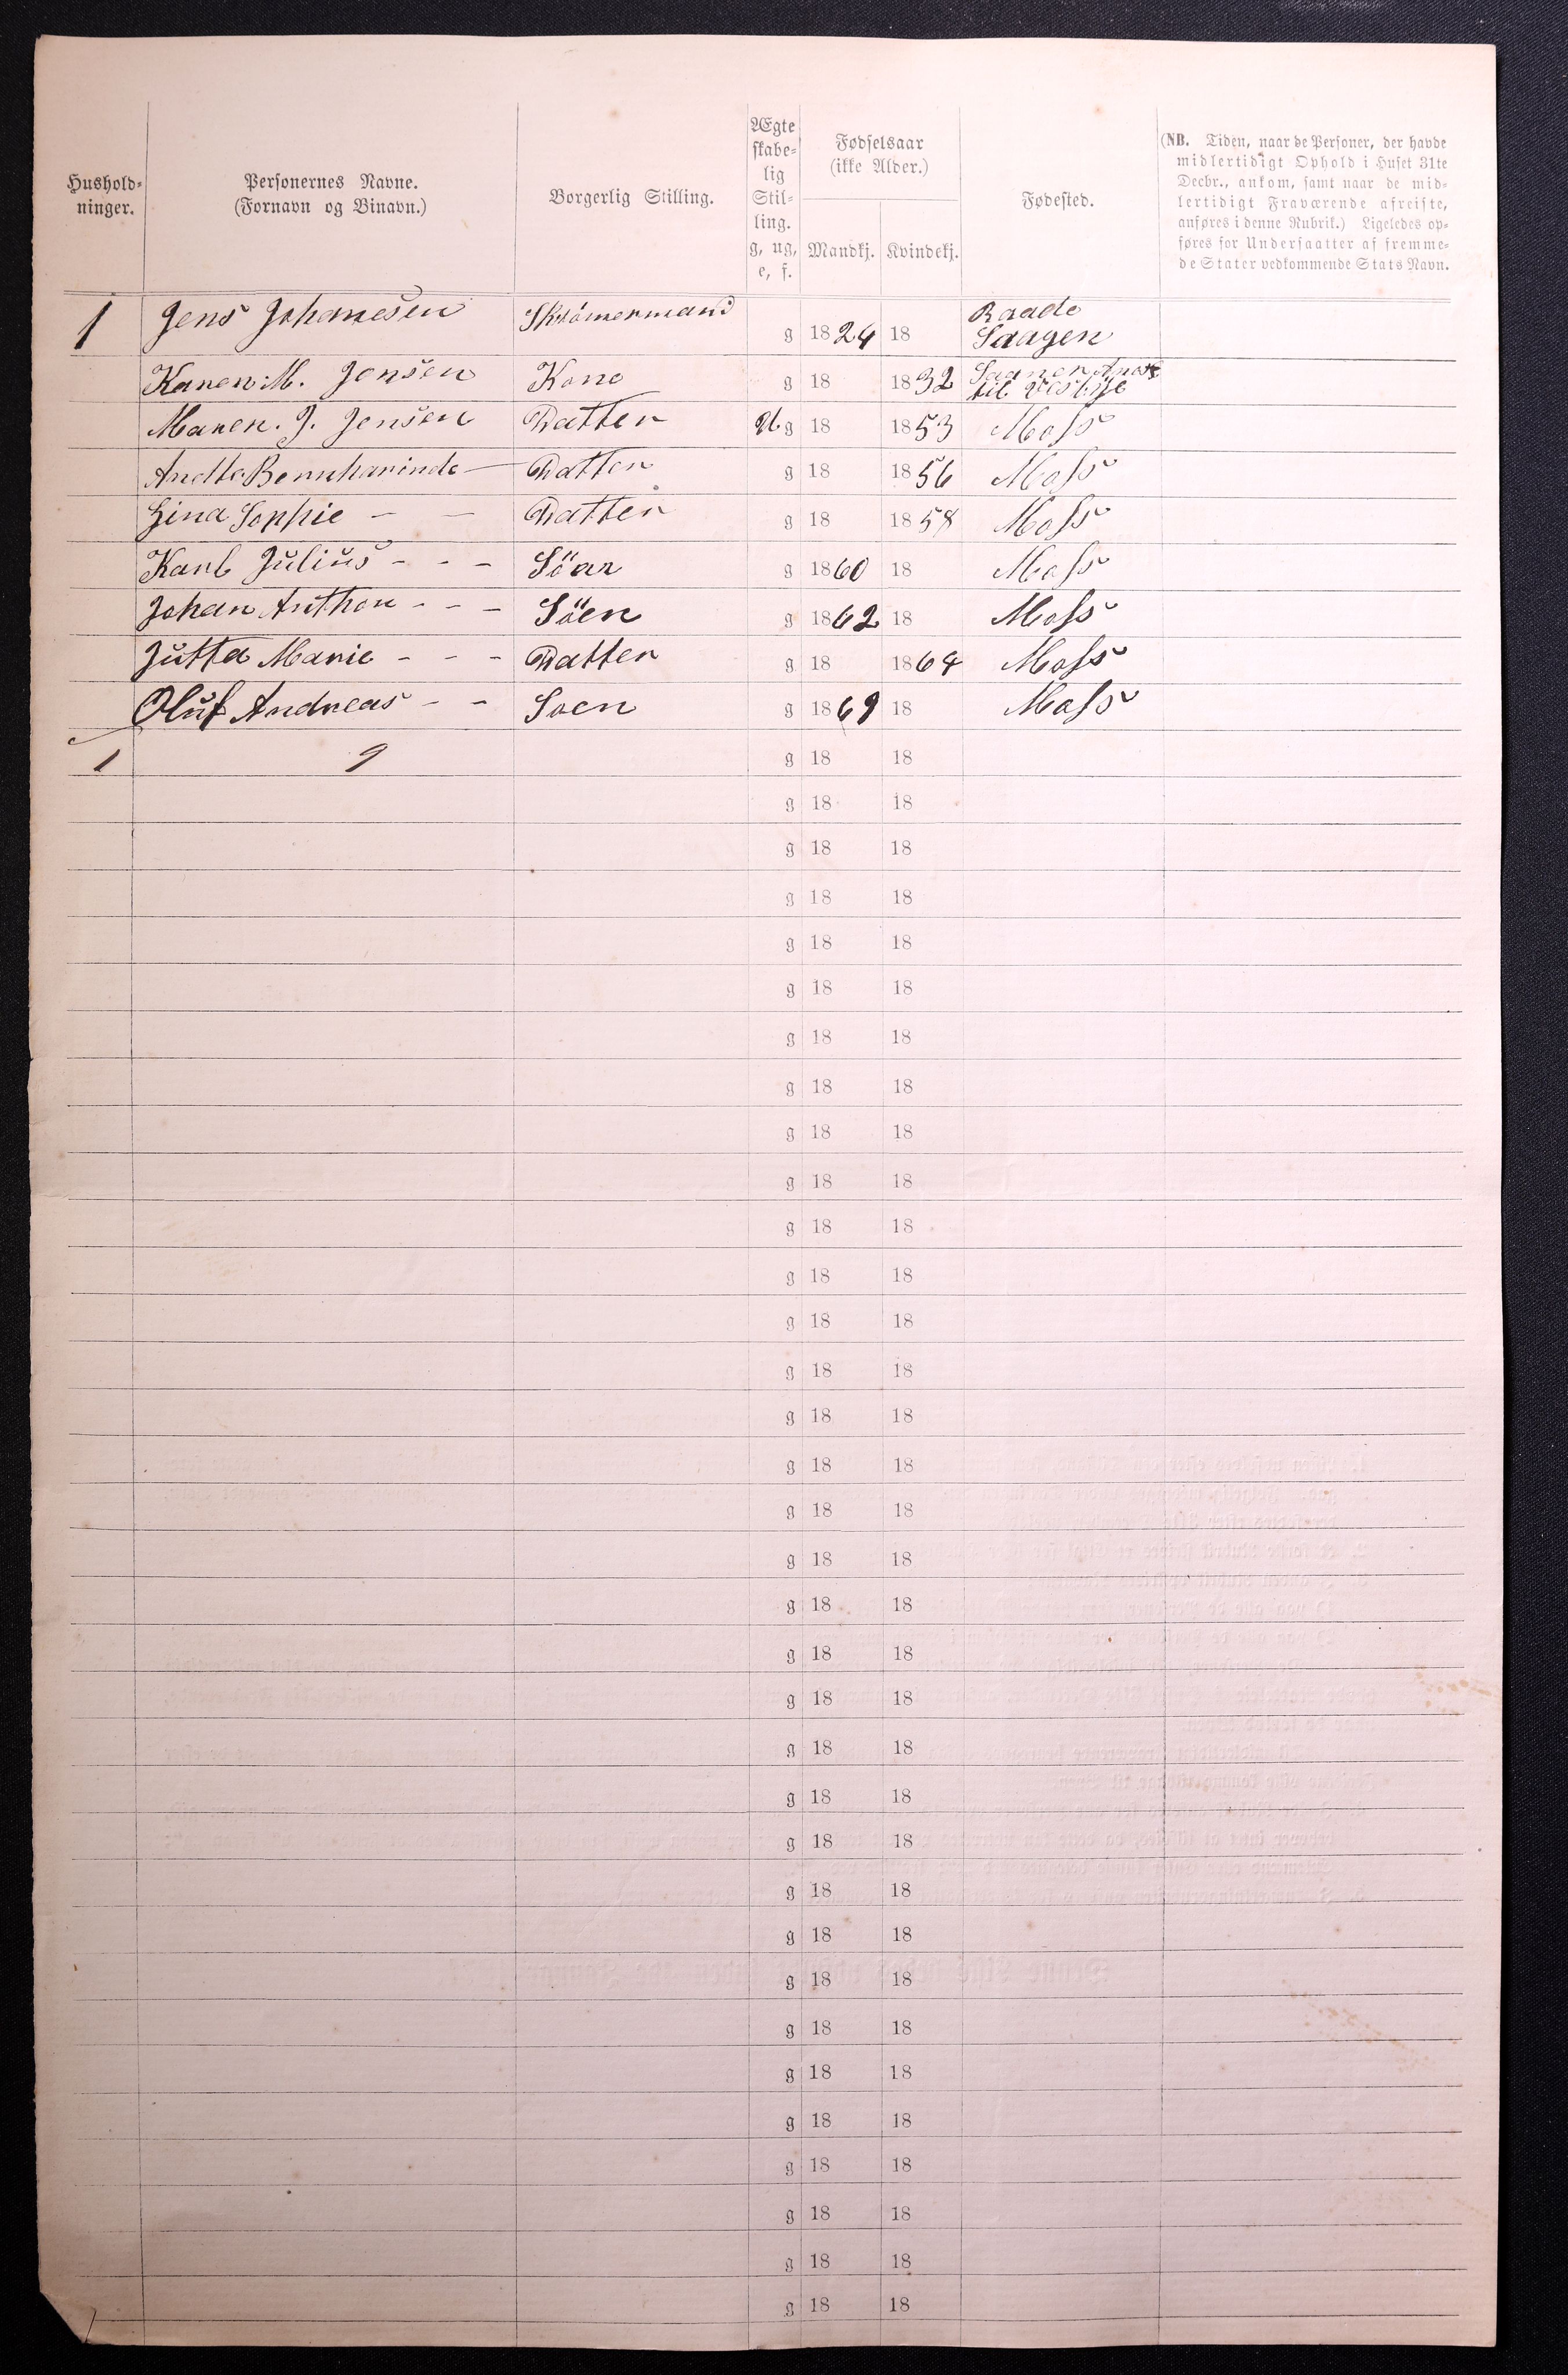 Hushold-
ninger.
Personernes Navne.
(Fornavn og Binavn.)
Borgerlig Stilling.
Ægte
skabe-
lig
Stil-
ling.
g, ug,
e, f.
Fødselsaar
(ikke Alder.)
Mandkj. Kvindekj.
Fødested.
(NB. Tiden, naar de Personer, der havde
midlertidigt Ophold i Huset 31te
Decbr., ankom, samt naar de mid-
lertidigt Fraværende afreiste,
anføres i denne Rubrik.) Ligeledes op-
føres for Undersaatter af fremme-
de Stater vedkommende Stats Navn.
1 Jens Johanesen g 1824 18 Raade
Saagen
Karen M. Jensen Kone g 18 1832
til Vestbye
Maren. J. Jensen Datter U g 18 1853 Moss
Bernharinde — Datter g 18 1856 Moss
Lina Sophie - - Datter g 18 1858 Moss
Karl Julius - - - Söan g 1860 18 Moss
Johan Anthon - - - Söen g 1862 18 Moss
Jutta Marie - - - Datter g 18 1864 Moss
Oluf Andreas - - Soen g 1869 18 Moss
1 9 g 18 18
g 18 18
g 18 18
g 18 18
g 18 18
g 18 18
g 18 18
g 18 18
g 18 18
g 18 18
g 18 18
g 18 18
g 18 18
g 18 18
g 18 18
g 18 18
g 18 18
g 18 18
g 18 18
g 18 18
g 18 18
g 18 18
g 18 18
g 18 18
g 18 18
g 18 18
g 18 18
g 18 18
g 18 18
g 18 18
g 18 18
g 18 18
g 18 18
g 18 18